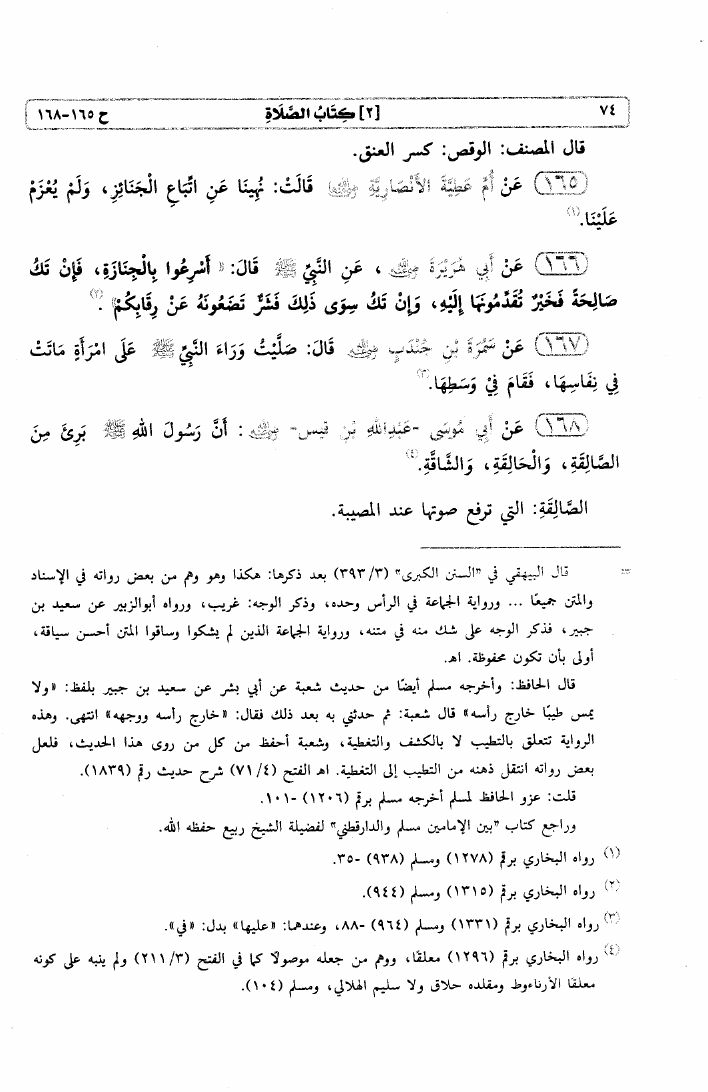 ٧٤ [٢] كِتَابُ الصَّلَاةِ ح ١٦٥-١٦٨
قال المصنف: الوقص: كسر العنق.
(١٦٥) عَنْ أُمِّ عَطِيَّةَ الأَنْصَارِيَّةِ رضي الله عنها قَالَتْ: نُهِينَا عَنِ اتِّبَاعِ الْجَنَائِزِ، وَلَمْ يُعْزَمْ
عَلَيْنَا.(١)
(١٦٦) عَنْ أَبِي هُرَيْرَةَ رضي الله عنه، عَنِ النَّبِيِّ ﷺ قَالَ: «أَسْرِعُوا بِالْجِنَازَةِ، فَإِنْ تَكُ
صَالِحَةً فَخَيْرٌ تُقَدِّمُونَهَا إِلَيْهِ، وَإِنْ تَكُ سِوَى ذَلِكَ فَشَرٌّ تَضَعُونَهُ عَنْ رِقَابِكُمْ».(٢)
(١٦٧) عَنْ سَمُرَةَ بْنِ جُنْدَبٍ رضي الله عنه قَالَ: صَلَّيْتُ وَرَاءَ النَّبِيِّ ﷺ عَلَى امْرَأَةٍ مَاتَتْ
فِي نِفَاسِهَا، فَقَامَ فِيْ وَسَطِهَا.(٣)
(١٦٨) عَنْ أَبِي مُوسَى -عَبْدِاللهِ بْنِ قَيس- رضي الله عنه: أَنَّ رَسُولَ اللهِ ﷺ بَرِئَ مِنَ
الصَّالِقَةِ، وَالْحَالِقَةِ، وَالشَّاقَّةِ.(٤)
الصَّالِقَةِ: التي ترفع صوتها عند المصيبة.
= قال البيهقي في "السنن الكبرى" (٣/ ٣٩٣) بعد ذكرها: هكذا وهو وهم من بعض رواته في الإسناد
والمتن جميعًا ... ورواية الجماعة في الرأس وحده، وذكر الوجه: غريب، ورواه أبوالزبير عن سعيد بن
جبير، فذكر الوجه على شك منه في متنه، ورواية الجماعة الذين لم يشكوا وساقوا المتن أحسن سياقة،
أولى بأن تكون محفوظة. اهـ.
قال الحافظ: وأخرجه مسلم أيضًا من حديث شعبة عن أبي بشر عن سعيد بن جبير بلفظ: «ولا
يمس طيبًا خارج رأسه» قال شعبة: ثم حدثني به بعد ذلك فقال: «خارج رأسه ووجهه» انتهى. وهذه
الرواية تتعلق بالتطيب لا بالكشف والتغطية، وشعبة أحفظ من كل من روى هذا الحديث، فلعل
بعض رواته انتقل ذهنه من التطيب إلى التغطية. اهـ الفتح (٤/ ٧١) شرح حديث رقم (١٨٣٩).
قلت: عزو الحافظ لمسلم أخرجه مسلم برقم (١٢٠٦) -١٠١.
وراجع كتاب "بين الإمامين مسلم والدارقطني" لفضيلة الشيخ ربيع حفظه الله.
(١) رواه البخاري برقم (١٢٧٨) ومسلم (٩٣٨) -٣٥.
(٢) رواه البخاري برقم (١٣١٥) ومسلم (٩٤٤).
(٣) رواه البخاري برقم (١٣٣١) ومسلم (٩٦٤) -٨٨، وعندهما: «عليها» بدل: «في».
(٤) رواه البخاري برقم (١٢٩٦) معلقًا، ووهم من جعله موصولًا كما في الفتح (٣/ ٢١١) ولم ينبه على كونه
معلقًا الأرناءوط ومقلده حلاق ولا سليم الهلالي، ومسلم (١٠٤).